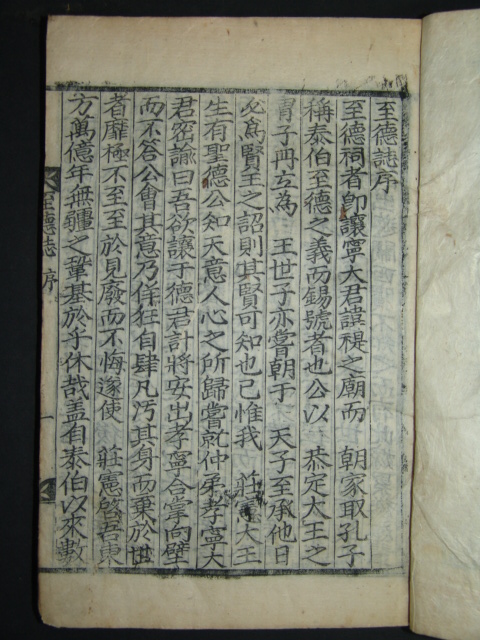 至德誌序
至德祠者卽讓寧大君諱禔之廟而 朝家取孔子
稱泰伯至德之義而錫號者也公以 恭定大王之
胄子再立為 王世子亦嘗朝于 天子至承他日
必為賢王之詔則其賢可知也已惟我 莊憲大王
生有聖德公知天意人心之所歸嘗就仲弟孝寧大
君密諭曰吾欲讓于德君計將安出孝寧合掌向壁
而不答公會其意乃佯狂自肆凡汚其身而棄於世
者靡極不至至於見廢而不悔遂使 莊憲啓吾東
方萬億年無疆之鞏基於乎休哉盖自泰伯以來數
至德誌 序 一